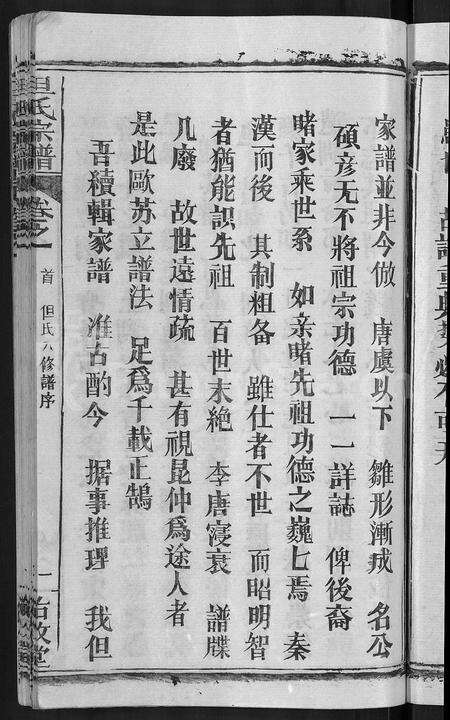 家譜並非今倣　唐虞以下　雛形漸成　名公
碩彦无不將祖宗功德　一一詳誌　俾後裔
睹家乘世系　如亲睹先祖功德之巍匕焉　秦
漢而後　其制粗备　雖仕者不世　而昭明智
者猶能識先祖　百世未絶　李唐寖衰　譜牒
几廢　故世遠情疏　甚有視昆仲爲途人者
是此歐苏立譜法　足爲千載正鵠
吾續輯家譜　准古酌今　据事推理　我但
但氏宗譜
卷之
首　但氏六修譜序
二